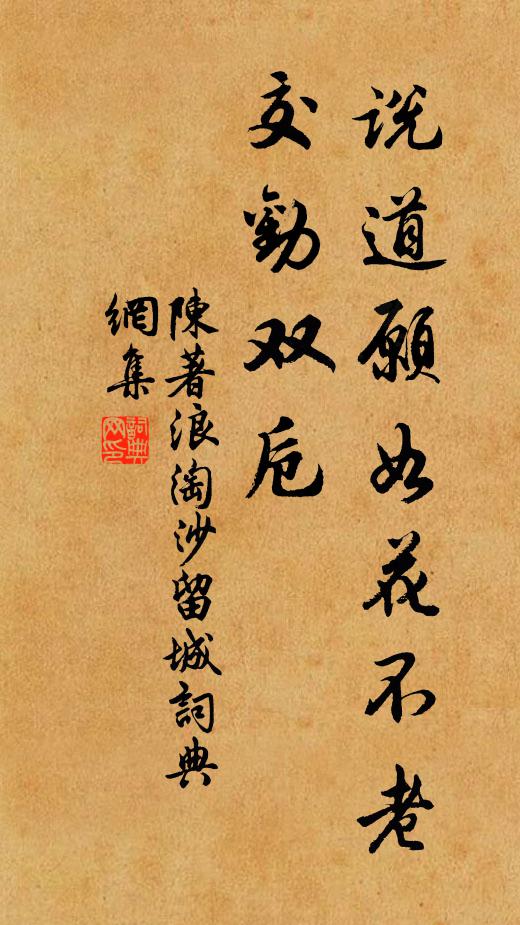 说道願如花不老
交勸双卮
陳著浪淘沙留城詞典
網集
詞典
网印